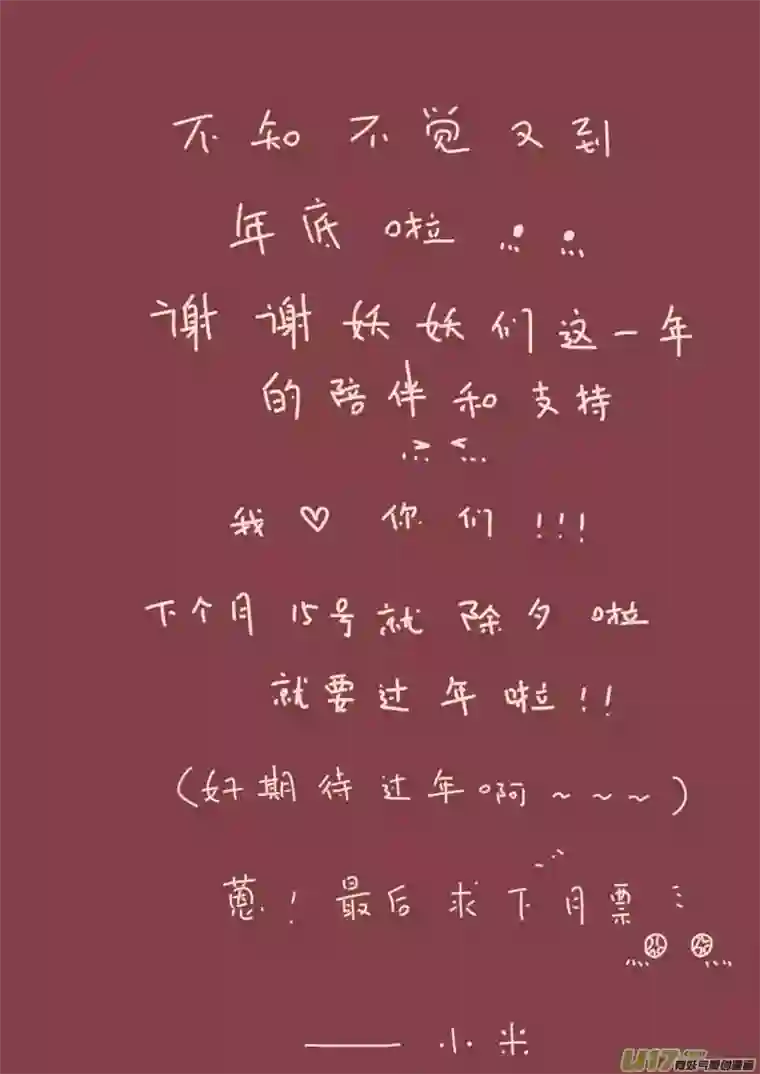 不知不觉又到
年底啦
谢谢妖妖们这一年
的陪伴和支持
我♡你们!!!
下个月15号就除夕啦
就要过年啦!!
(好期待过年啊~~~)
蒽!最后求下月票
——小米
U17
有妖气原创漫画